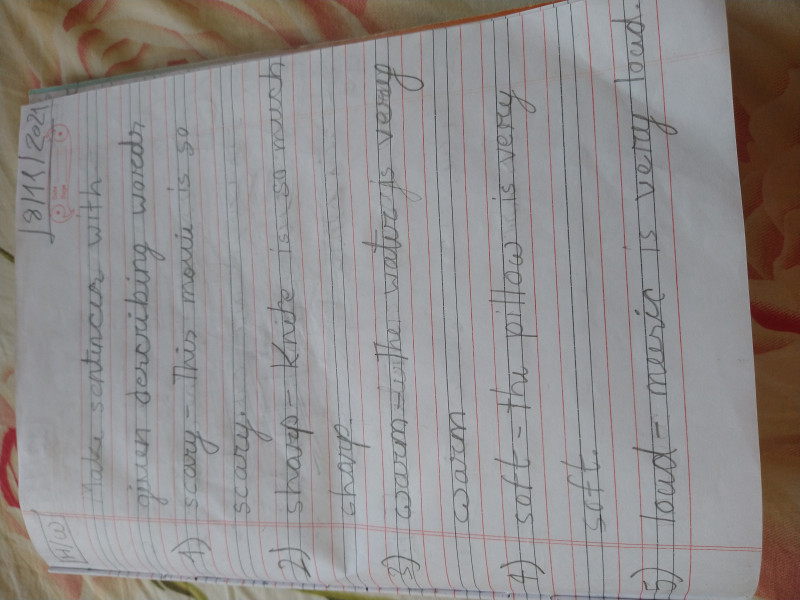 H/W
8/11/2021
Make sentences with
given describing words
1) scary - This movie is so
scary.
2) sharp - Knife is so much
sharp.
3) warm - The water is very
warm
4) soft - The pillow is very
soft.
5) loud - music is very loud.